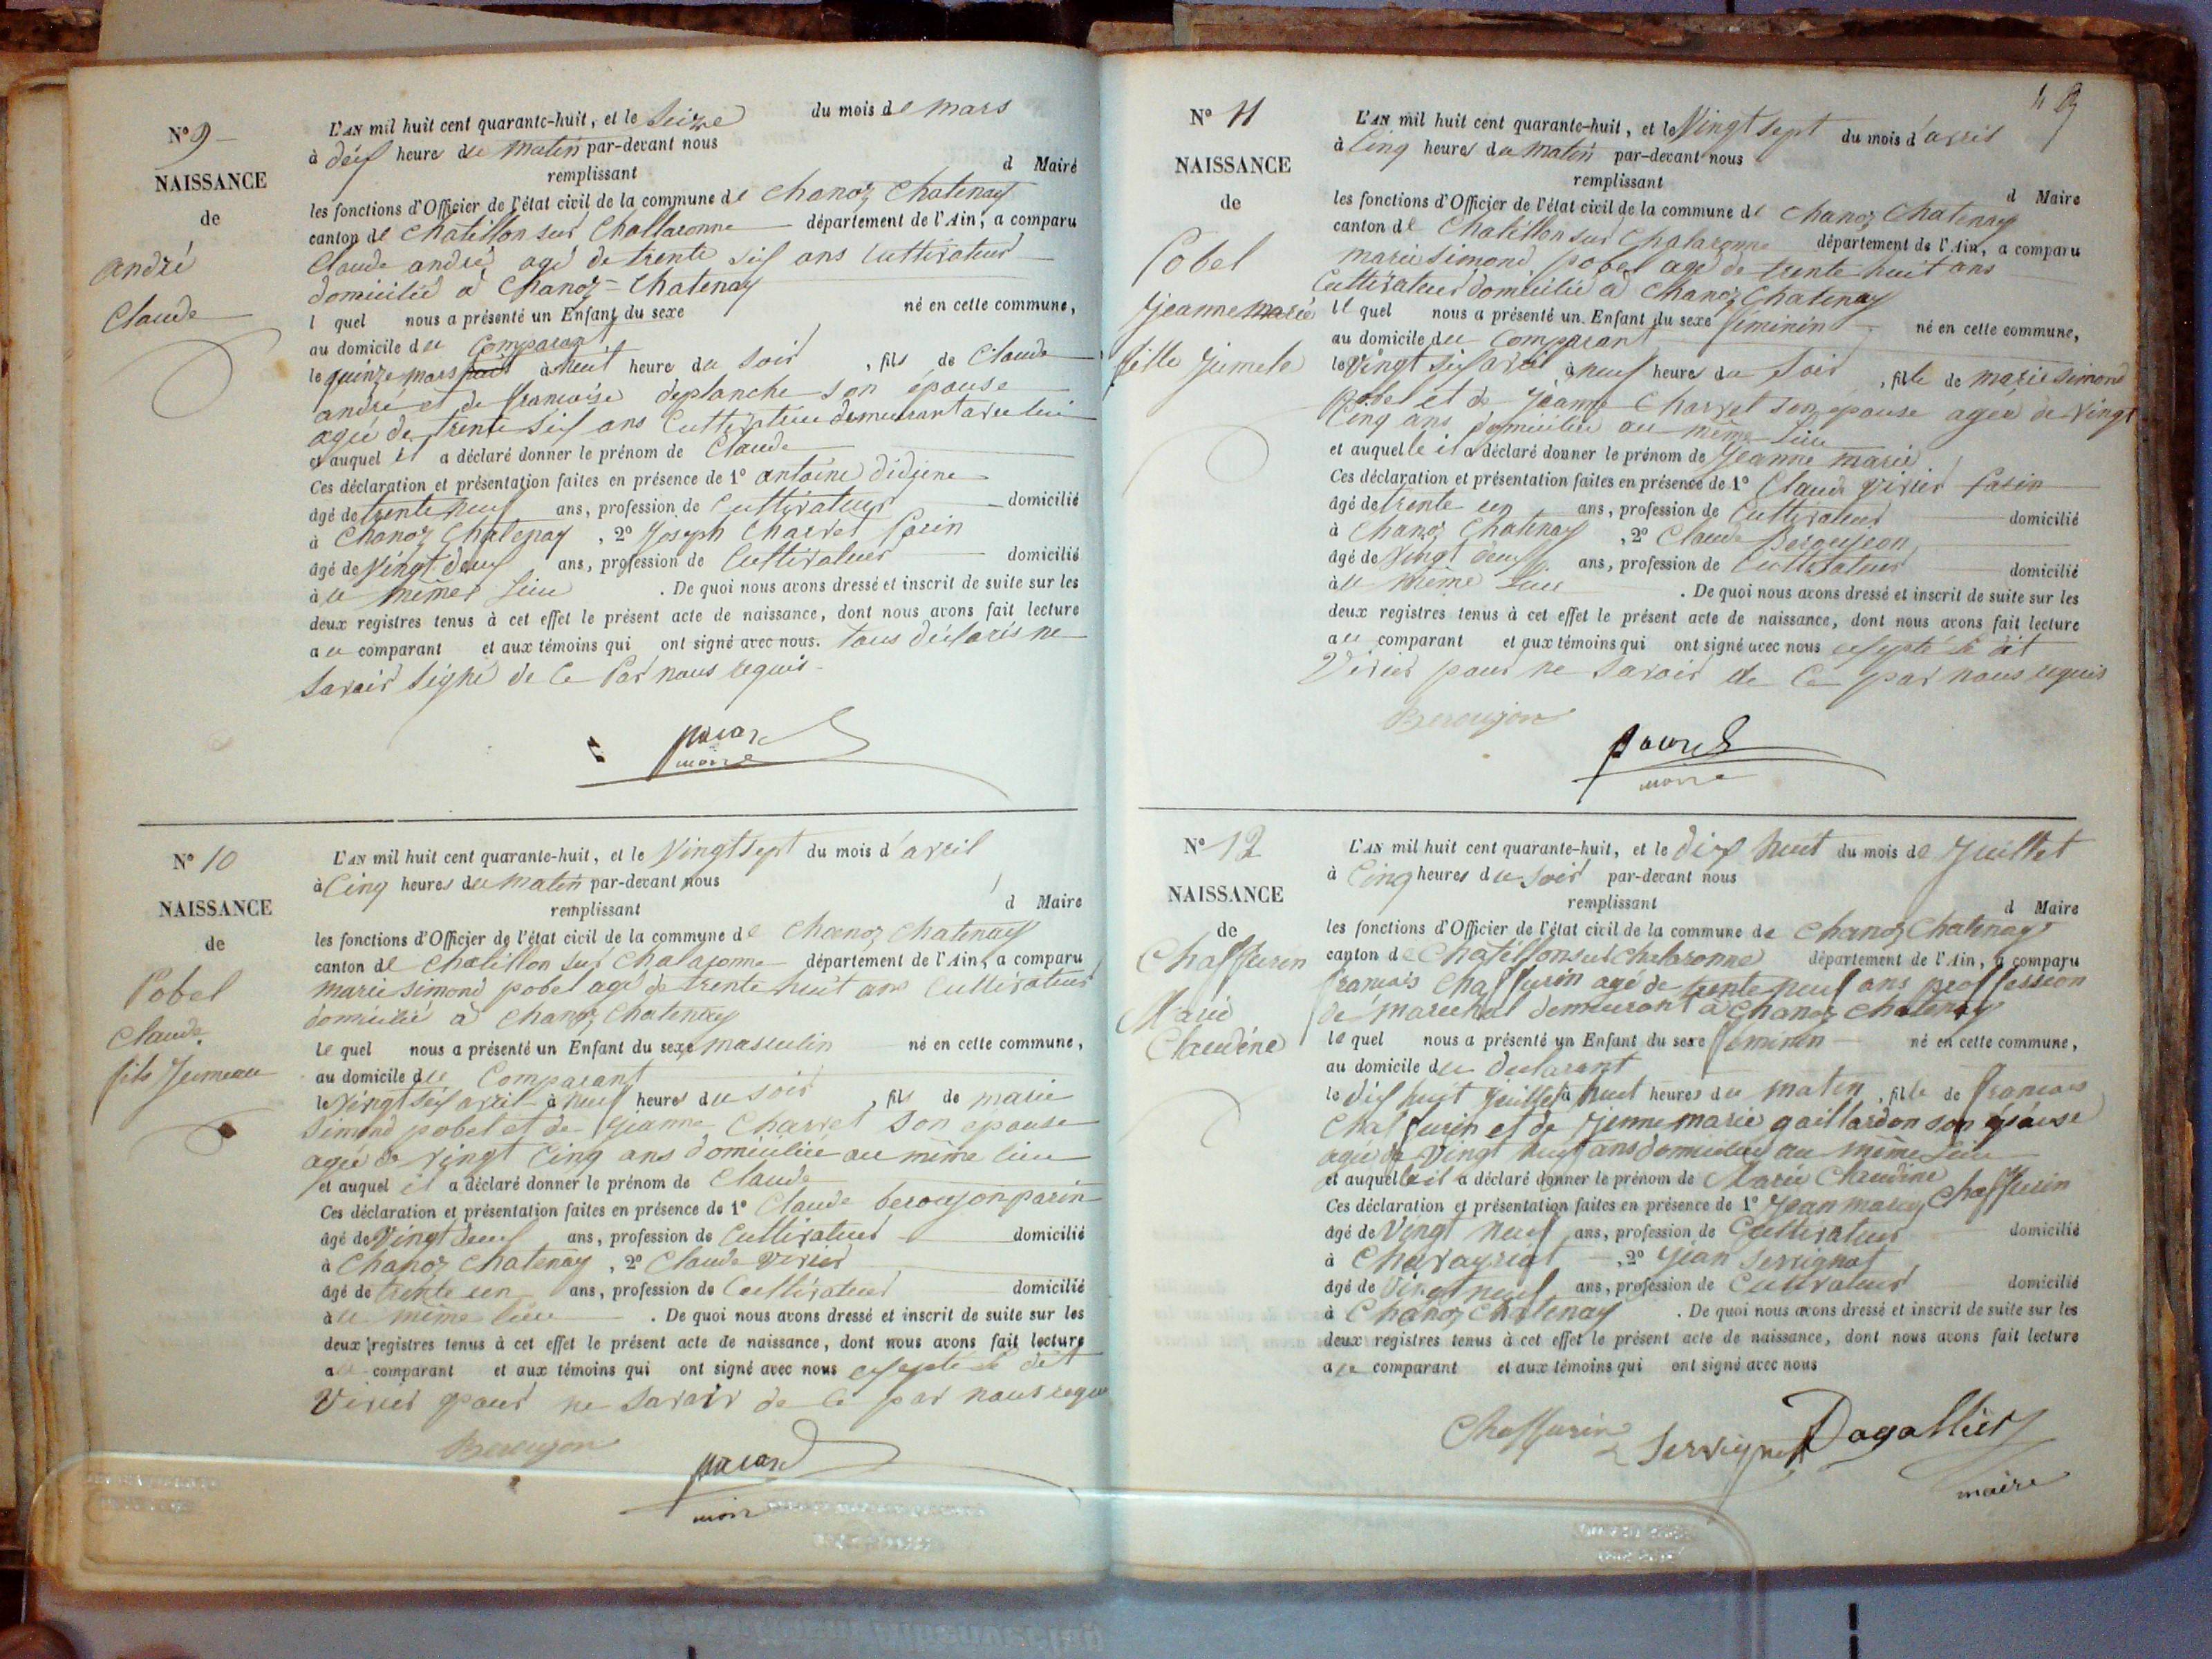 N° 9
NAISSANCE
de
andré
Claude
L'AN mil huit cent quarante-huit, et le Seize du mois de mars
à dix heure du matin par-devant nous
d Maire
remplissant
les fonctions d'Officier de l'état civil de la commune de Chanoz Chatenay
canton de Chatillon sur Challaronne département de l'Ain, a comparu
Claude andré agé de trente six ans Cultivateur
domicilié à Chanoz = Chatenay
l quel nous a présenté un Enfant du sexe né en cette commune,
au domicile du Comparant
le quinze mars à heure du Soir, fils de Claude
andré et de francoise deplanche son épouse
agée de trente six ans demeurant avec lui
et auquel il a déclaré donner le prénom de Claude
Ces déclaration et présentation faites en présence de 1° antoine
âgé de trente neuf ans, profession de Cultivateur domicilié
à Chanoz Chatenay, 2° Joseph Charvet
âgé de Vingt deux ans, profession de Cultivateur domicilié
au même lieu. De quoi nous avons dressé et inscrit de suite sur les
deux registres tenus à cet effet le présent acte de naissance, dont nous avons fait lecture
au comparant et aux témoins qui ont signé avec nous. tous ne
Savoir Signé de Ce Par nous requis
maire
N° 10
NAISSANCE
de
Pobel
Claude
fils Jumeau
L'AN mil huit cent quarante-huit, et le Vingt sept du mois d'avril
à Cinq heures du matin par-devant nous
d Maire
remplissant
les fonctions d'Officier de l'état civil de la commune de Chanoz Chatenay
canton de Chatillon sur Chalaronne département de l'Ain, a comparu
marie simond pobel agé de trente huit ans Cultivateur
domicilié à Chanoz Chatenay
le quel nous a présenté un Enfant du sexe masculin né en cette commune,
au domicile du Comparant
le Vingt six avril à neuf heures du soir, fils de marie
Simond pobel et de Jeanne Charvet Son epouse
agée de vingt Cinq ans domiciliée au même lieu
et auquel il a déclaré donner le prénom de Claude
Ces déclaration et présentation faites en présence de 1° Claude beroujon parin
âgé de Vingt deux ans, profession de Cultivateur domicilié
à Chanoz Chatenay, 2° Claude Virier
âgé de trente un ans, profession de Cultivateur domicilié
au même lieu. De quoi nous avons dressé et inscrit de suite sur les
deux registres tenus à cet effet le présent acte de naissance, dont nous avons fait lecture
au comparant et aux témoins qui ont signé avec nous exepté le dit
Virier pour ne Savoir de Ce par nous requis
Beroujon
N° 11
NAISSANCE
de
Pobel
Jeanne Marie
fille Jumele
L'AN mil huit cent quarante-huit, et le Vingt sept du mois d'avril
à Cinq heures du matin par-devant nous
d Maire
remplissant
les fonctions d'Officier de l'état civil de la commune de Chanoz Chatenay
canton de Chatillon sur Chalaronne département de l'Ain, a comparu
marie simond pobel agé de trente huit ans
Cultivateur domicilié à Chanoz Chatenay
le quel nous a présenté un Enfant du sexe féminin né en cette commune,
au domicile du Comparant
le Vingt six avril à neuf heures du Soir, fille de marie simond
Pobel et de Jeanne Charvet son epouse agée de Vingt
Cinq ans domiciliée au même lieu
et auquelle il a déclaré donner le prénom de Jeanne marie
Ces déclaration et présentation faites en présence de 1° Claude Virier Parin
âgé de trente un ans, profession de Cultivateur domicilié
à Chanoz Chatenay, 2° Claude Beroujeon
âgé de Vingt deux ans, profession de Cultivateur domicilié
au même lieu. De quoi nous avons dressé et inscrit de suite sur les
deux registres tenus à cet effet le présent acte de naissance, dont nous avons fait lecture
au comparant et aux témoins qui ont signé avec nous exepté le dit
Virier pour ne Savoir de Ce par nous requis
Beroujon
maire
N° 12
NAISSANCE
de
Chaffurin
Marie
Claudine
L'AN mil huit cent quarante-huit, et le dix huit du mois de Juillet
à Cinq heures du Soir par-devant nous
d Maire
remplissant
les fonctions d'Officier de l'état civil de la commune de Chanoz Chatenay
canton de Chatillon sur Chalaronne département de l'Ain, a comparu
francois Chaffurin agé de trente neuf ans proffession
de marechal demeurant à Chanoz Chatenay
le quel nous a présenté un Enfant du sexe féminin né en cette commune,
au domicile du declarant
le dix huit juillet à huit heures du matin, fille de francois
Chaffurin et de Jenne marie gaillardon son épouse
agée de Vingt ans domiciliée au même lieu
et auquelle il a déclaré donner le prénom de Marie Claudine
Ces déclaration et présentation faites en présence de 1° Jean marie Chaffurin
âgé de Vingt neuf ans, profession de Cultivateur domicilié
à Chavayriat, 2° Jean Servignat
âgé de Vingt neuf ans, profession de Cultivateur domicilié
à Chanoz Chatenay. De quoi nous avons dressé et inscrit de suite sur les
deux registres tenus à cet effet le présent acte de naissance, dont nous avons fait lecture
au comparant et aux témoins qui ont signé avec nous
Chaffurin Servignat Dagallier
maire